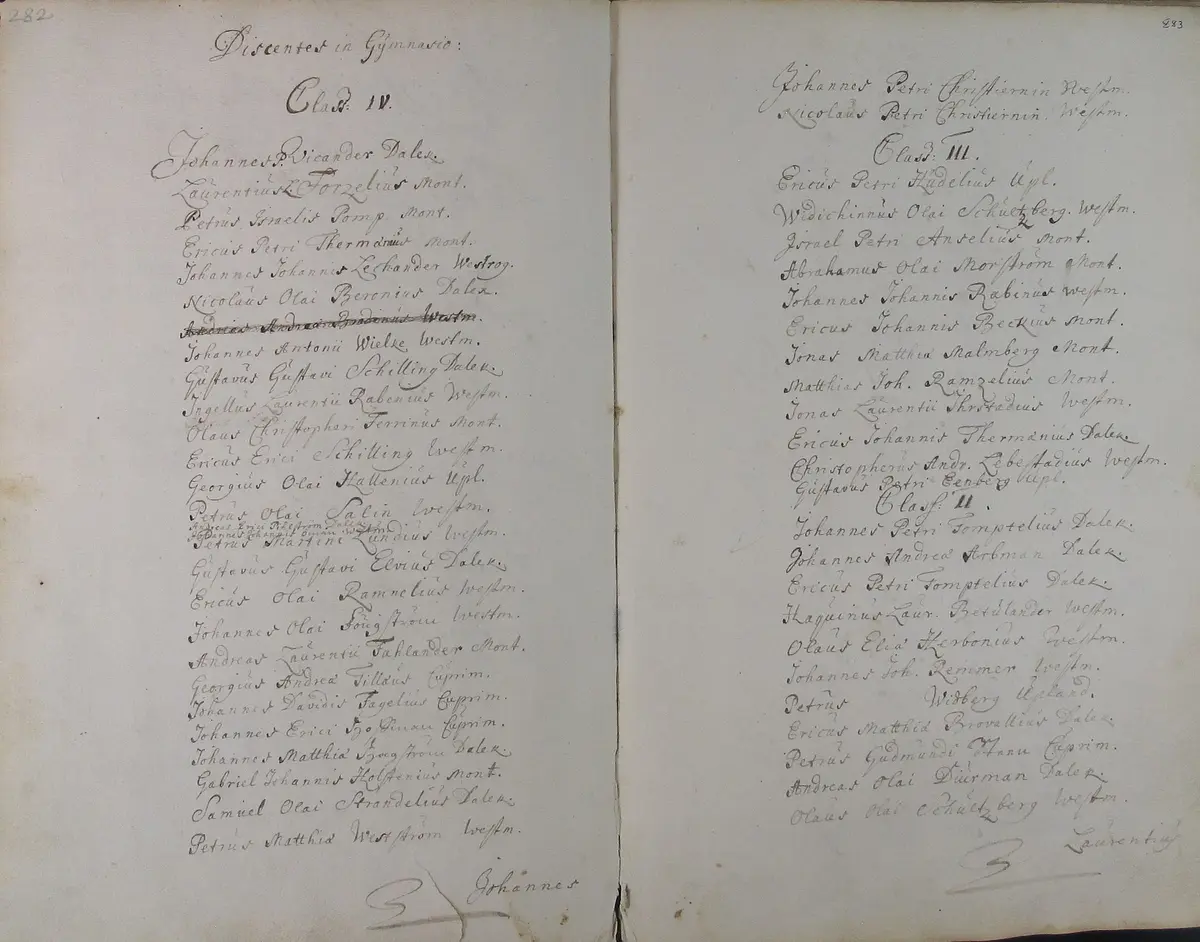 282
Discentes in Gÿmnasio:
Class: IV.
Johannes P. Vicander Dalek.
Laurentius L. Torzelius Mont.
Petrus Israelis Pomp Mont.
Ericus Petri Thermænius Mont.
Johannes Johannis Leckander Westrog.
Nicolaüs Olai Beronius Dalek.
Andreas Andreæ Westm.
Johannes Antonii Wielke Westm.
Güstavüs Güstavi Schilling Dalek.
Ingellus Laurentii Rabenius Westm.
Olaüs Christopheri Ferrinus Mont.
Ericüs Erici Schilling Westm.
Georgiüs Olai Hallenius Upl.
Petrus Olai Salin Westm.
Andreas Erici Dalek.
Johannes Johannis
Petrüs Martini Lundiüs Westm.
Güstavüs Güstavi Elvius Dalek.
Ericüs Olai Ramnelius Westm.
Johannes Olai Föugström Westm.
Andreas Laurentii Fahlander Mont.
Georgiüs Andreæ Tillæus Cüprim.
Johannes Davidis Fagelius Cüprim.
Johannes Erici Hoffman Cüprim.
Johannes Matthiæ Dalek.
Gabriel Johannis Holstenius Mont.
Samüel Olai Strandelius Dalek.
Petrus Matthiæ Westström Westm.
Johannes
283
Johannes Petri Christiernin Westm.
Nicolaüs Petri Christiernin. Westm.
Class: III.
Ericüs Petri Hüdelius Upl.
Widichinnüs Olai Schuetzberg. Westm.
Israel Petri Anseliüs Mont.
Abrahamus Olai Morström Mont.
Johannes Johannis Rabinüs Westm.
Ericus Johannis Beckius Mont.
Jonas Matthiæ Malmberg Mont.
Matthias Joh. Ramzelius Mont.
Jonas Laurentii Westm.
Ericus Johannis Thermænius Dalek.
Christopherüs Andr. Lebestadius Westm.
Güstavus Petri Eenberg Upl.
Class: II.
Johannes Petri Tomptelius Dalek.
Johannes Andreæ Arbman Dalek.
Ericüs Petri Tomptelius Dalek.
Haquinüs Laur. Betülander Westm.
Olaüs Eliæ Herboniüs Westm.
Johannes Joh. Remmer Westm.
Petrüs Widberg Upland.
Ericüs Matthiæ Brovallius Dalek.
Petrüs Güdmündi Cüprim.
Andreas Olai Düürman Dalek.
Olaüs Olai Schuetzberg Westm.
Laürentiüs